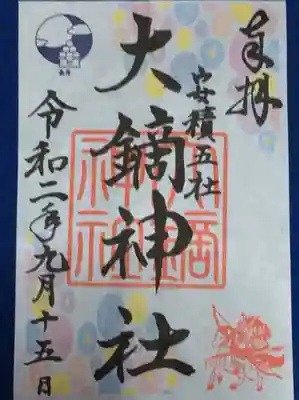 奉拝
安積五社
大鏑神社
令和二年九月十五日